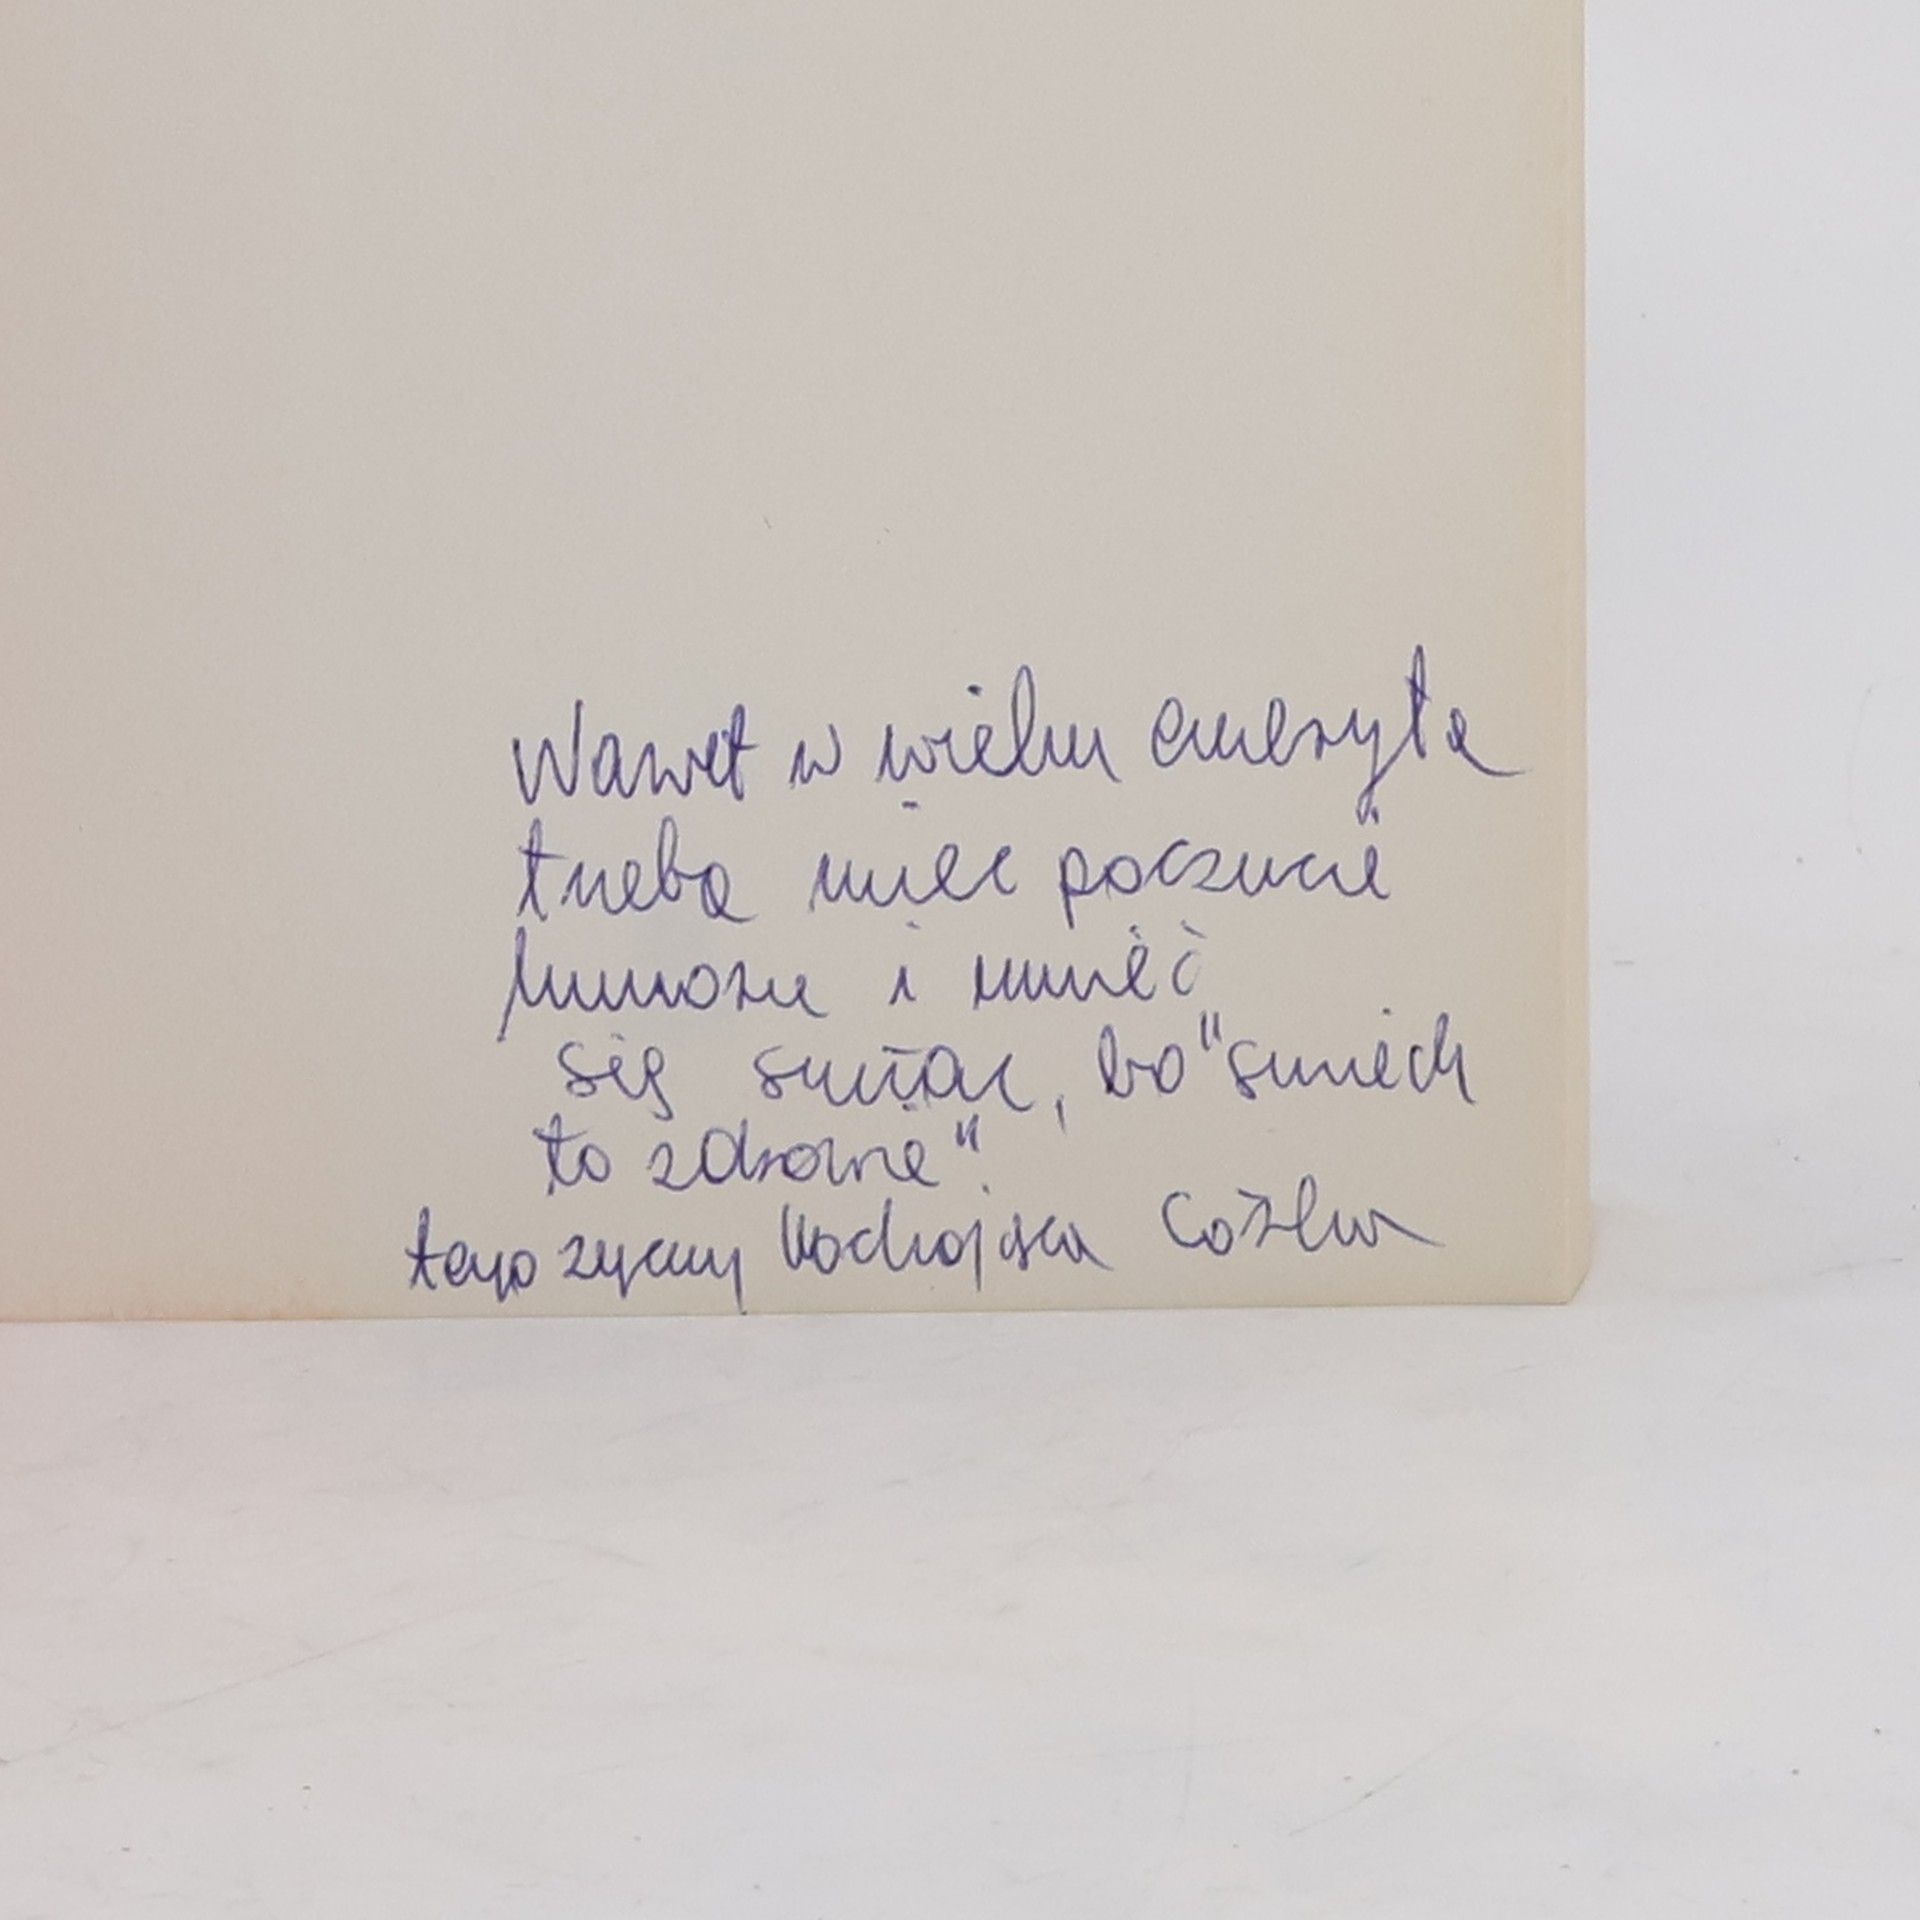 Nawet w wieku emeryta
trzeba mieć poczucie
humoru i umieć
się śmiać, bo "śmiech
to zdrowie".
tego życzy kochająca Córka